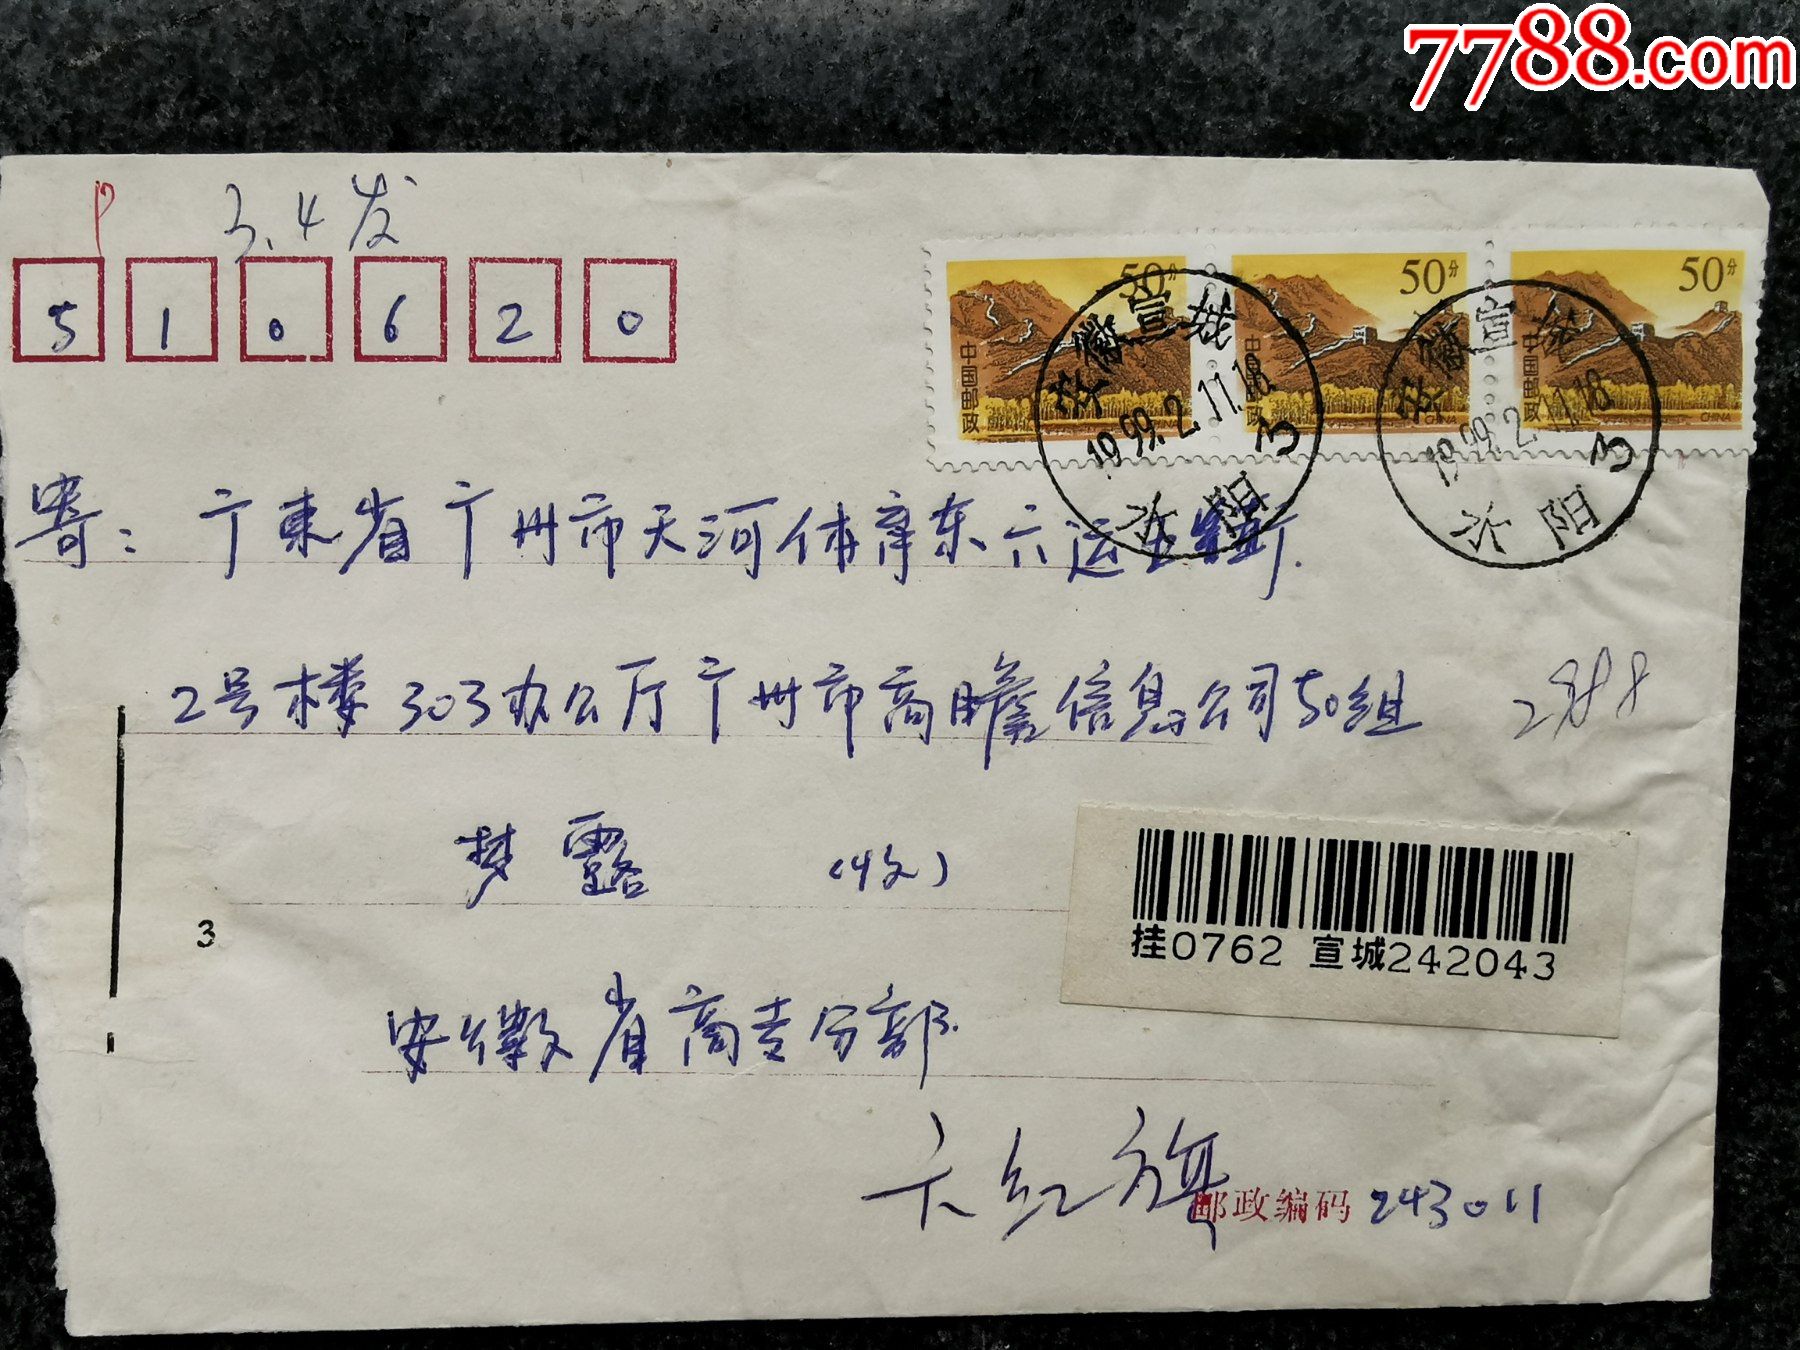 7788.com
3.4发
510620
50分 50分 50分
中国邮政 中国邮政 中国邮政
CHINA CHINA
安徽宣城
1999.2.11.18
3
安徽宣城
1999.2.11.18
3
阳
寄：广东省广州市天河体育东六运五街.
2号楼303办公厅广州市高瞻信息公司50组
2988
梦露 (收)
3
挂0762 宣城242043
安徽省商专分部.
红旗
邮政编码 243011